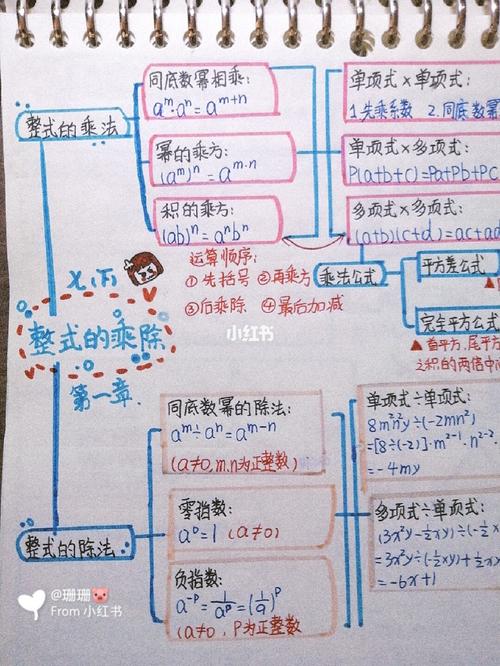 同底数幂相乘:
aᵐ·aⁿ=aᵐ⁺ⁿ
整式的乘法
幂的乘方:
(aᵐ)ⁿ=aᵐ·ⁿ
积的乘方:
(ab)ⁿ=aⁿbⁿ
单项式×单项式:
1.先乘系数 2.同底数幂
单项式×多项式:
P(a+b+c)=Pa+Pb+Pc
多项式×多项式:
(a+b)(c+d)=ac+ad
运算顺序:
①先括号 ②再乘方
③后乘除 ④最后加减
乘法公式
平方差公式
完全平方公式
▲首平方,尾平方
2积的两倍中
七下
整式的乘除
第一章
小红书
同底数幂的除法:
aᵐ÷aⁿ=aᵐ⁻ⁿ
(a≠0,m.n为正整数)
整式的除法
零指数:
a⁰=1 (a≠0)
负指数:
a⁻ᵖ=1/aᵖ=(1/a)ᵖ
(a≠0,P为正整数
单项式÷单项式:
8m²n²y÷(-2mn²)
=[8÷(-2)]·m²⁻¹·n²⁻²
=-4my
多项式÷单项式:
(3x²y-½xy)÷(-½x
=3x²y÷(-½xy)+½x
=-6x+1
@珊珊🐷
From 小红书